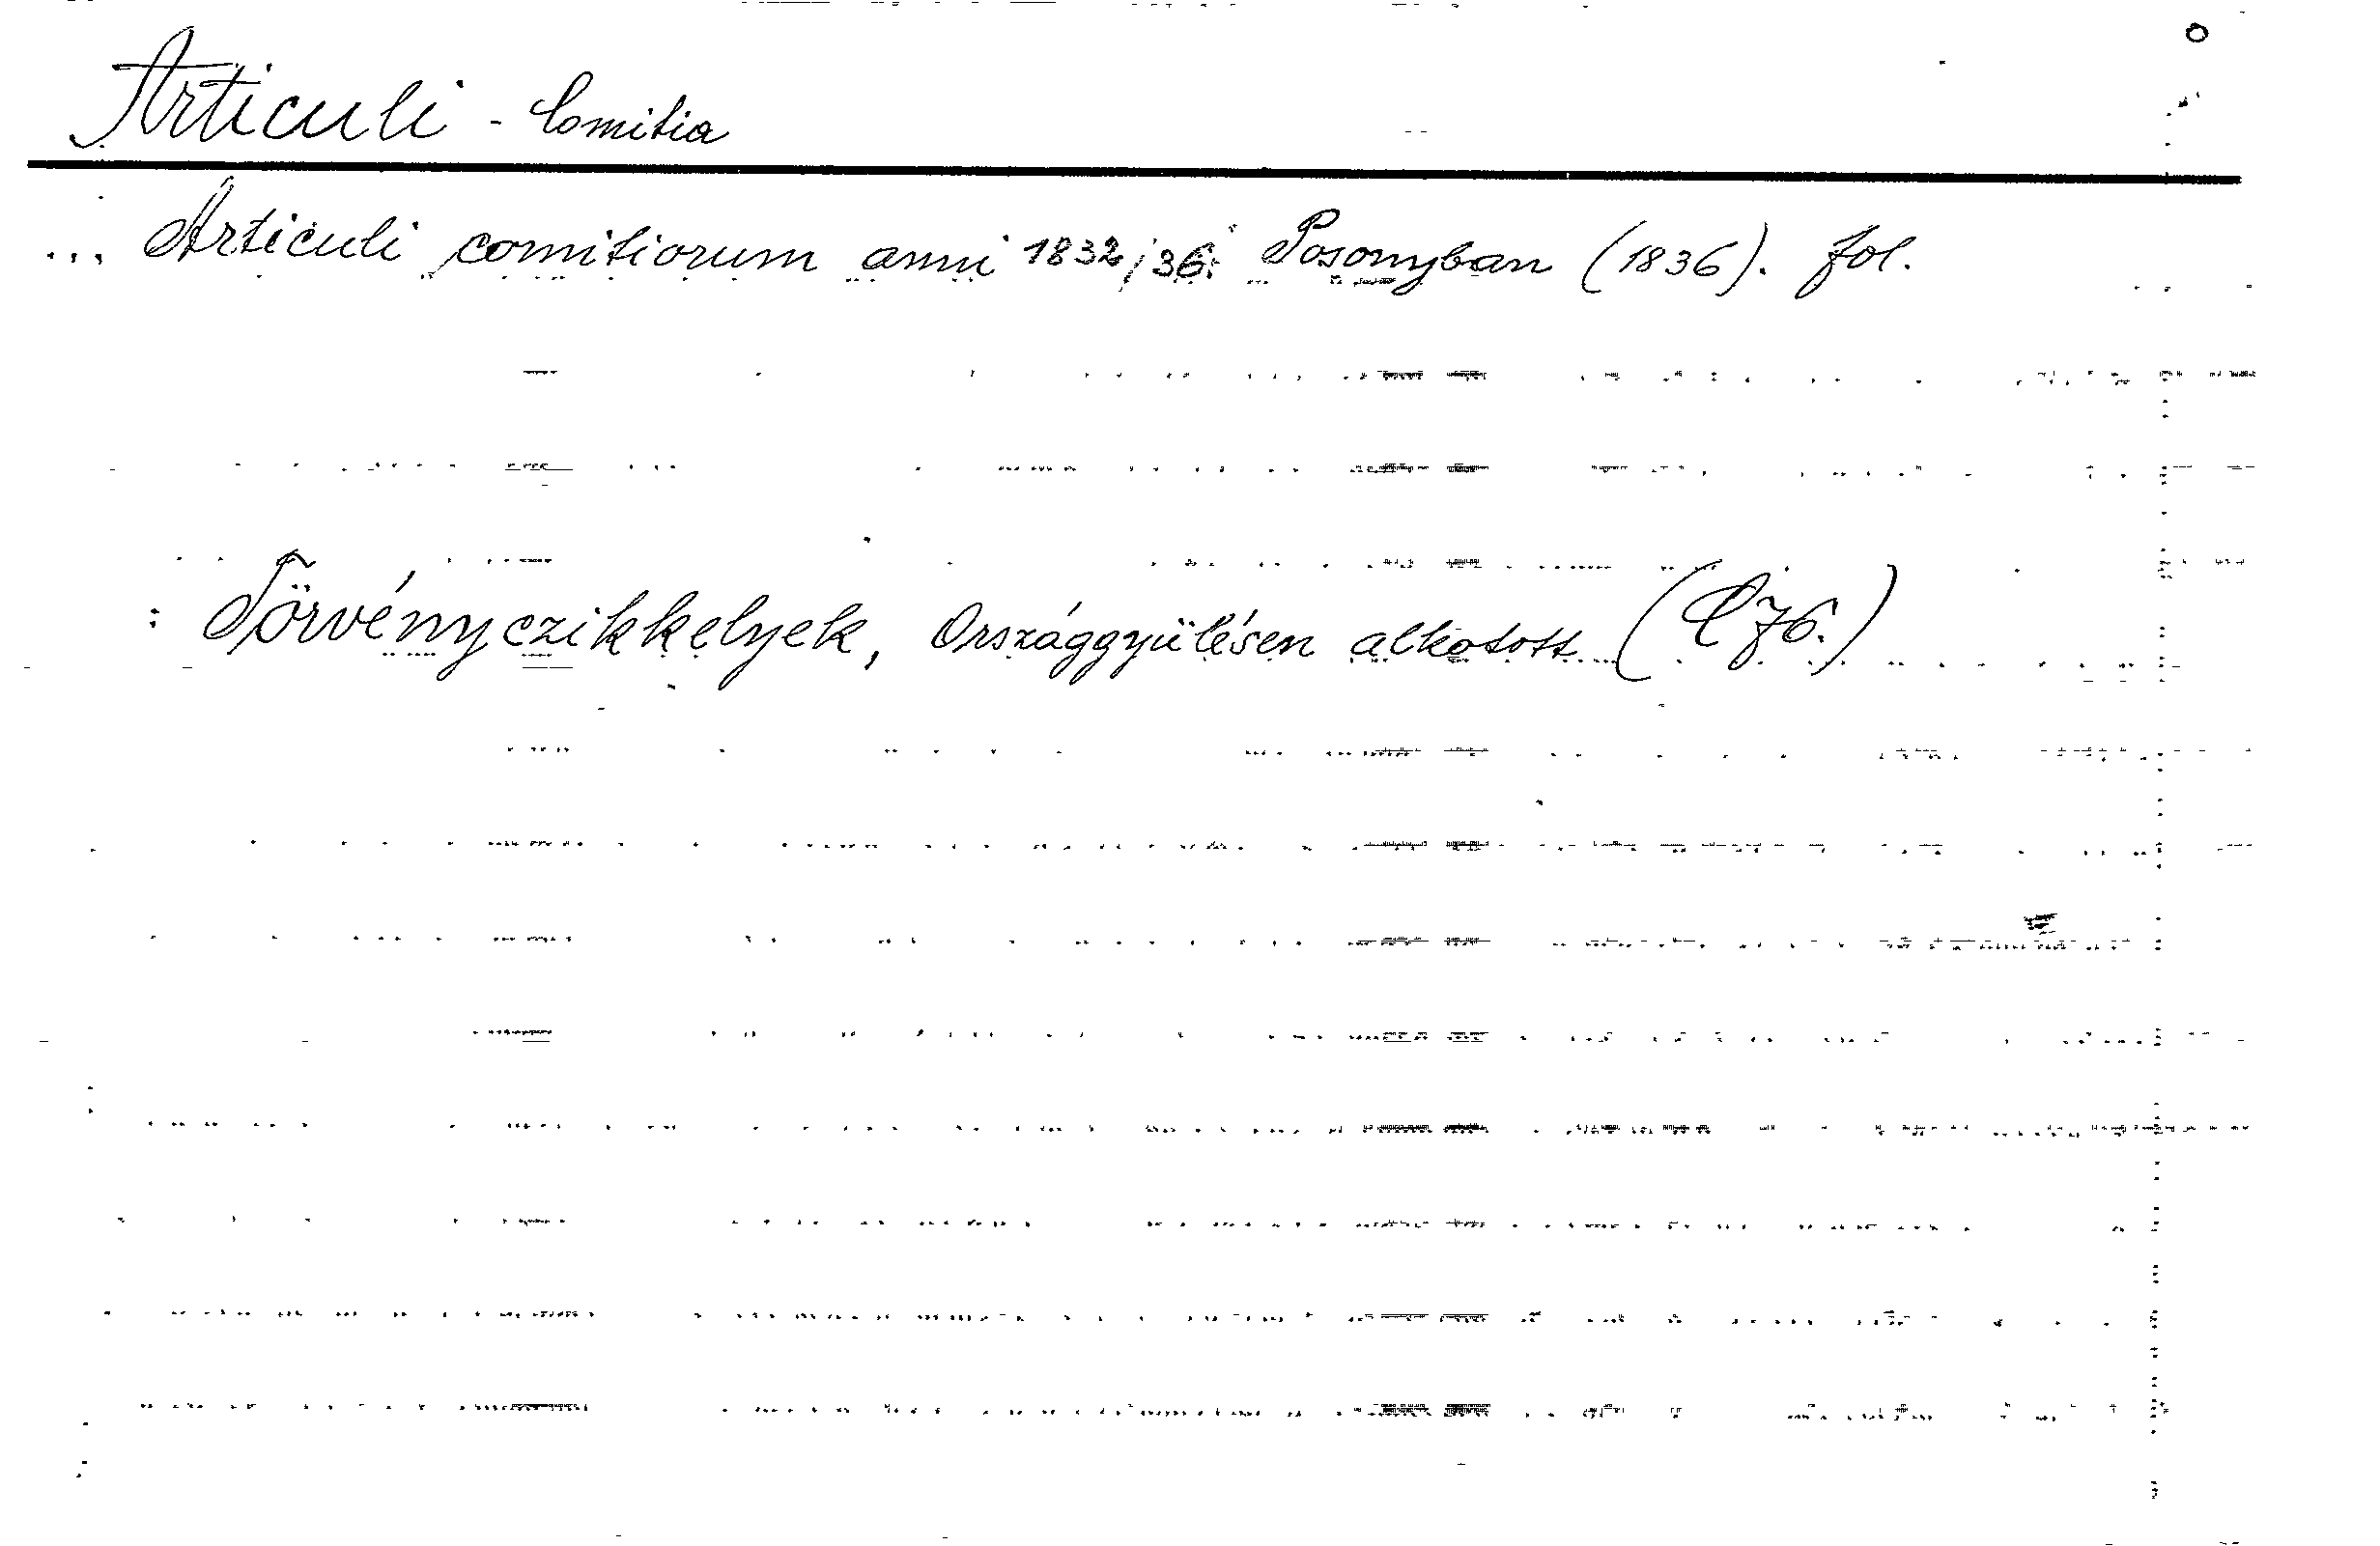 Articuli - Comitia
... Articuli comitiorum anni 1832/36. Posonyban (1836). fol.
: Törvényczikkelyek, Országgyülésen alkotott (C76.)